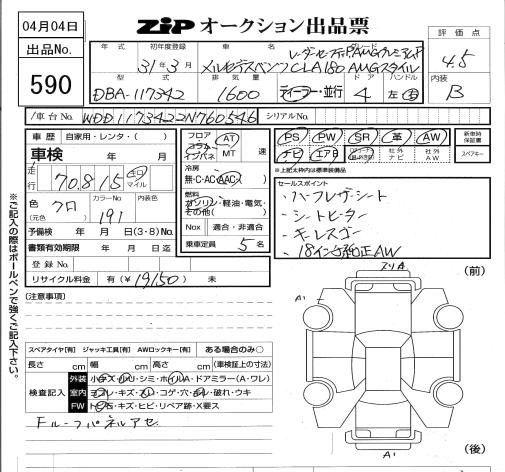 04月04日
ZiP オークション出品票
出品No.
590
年式 初年度登録 車名 グレード 評価点
31年3月 メルセデスベンツ CLA180 AMGスタイル 4.5
レーダーセーフティP AMGプレミアムP
型式 排気量 ドア ハンドル 内装
DBA-117342 1600 ディーラー・並行 4 左 右 B
車台No. WDD1173422N760546 シリアルNo.
車歴 自家用・レンタ・( )
車検 年 月
走行 70.815 km マイル
色 (元色) クロ カラーNo. 191 内装色
予備検 年 月 日(3・8)No.
書類有効期限 年 月 日迄
登録No.
リサイクル料金 有(¥19150)未
フロア コラム インパネ AT MT 速
冷房
無・C・AC・AAC
燃料
ガソリン・軽油・電気・その他( )
Nox 適合・非適合
乗車定員 5名
PS PW SR 革 AW
ナビ エアB 社外ナビ 社外AW
新車時保証書
スペアキー
※上記太枠内は標準装備品
セールスポイント
・ハーフレザーシート
・シートヒーター
・キーレスゴー
・18インチ純正AW
(注意事項)
スペアタイヤ[有] ジャッキ工具[有] AWロックキー[有] ある場合のみ○
長さ cm 幅 cm 高さ cm (車検証上の寸法)
検査記入
外装 小キズ・小凹・シミ・ホイルA・ドアミラー(A・ワレ)
室内 ヨゴレ・キズ・スレ・コゲ・穴・凸凹・破れ・ウキ
FW トビ石・キズ・ヒビ・リペア跡・X要ス
Fルーフパネルアセ
スリA
(前)
A1
A1
(後)
※ご記入の際はボールペンで強くご記入下さい。